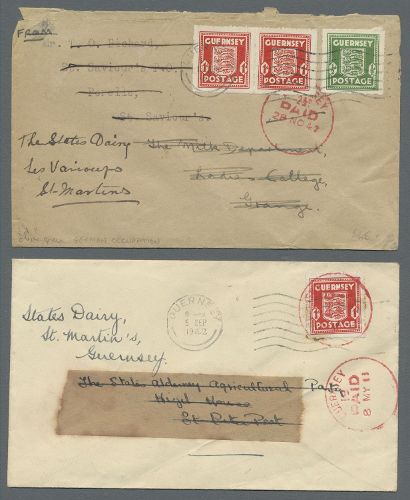 FROM
Mr. T. O. Richard,
St. Saviour's
Perelle,
St. Saviour's.
GUERNSEY
POSTAGE
GUERNSEY
POSTAGE
GUERNSEY
POSTAGE
PAID
The States Dairy
Les Vauxbelets
St. Martins
The Milk Department,
Ladies College,
Grange.
GERMAN OCCUPATION
States Dairy,
St. Martin's,
Guernsey.
GUERNSEY
5 SEP
1942
GUERNSEY
POSTAGE
The States Alderney Agricultural Party
Hirzel House
St Peter Port
GUERNSEY
PAID
8 MY